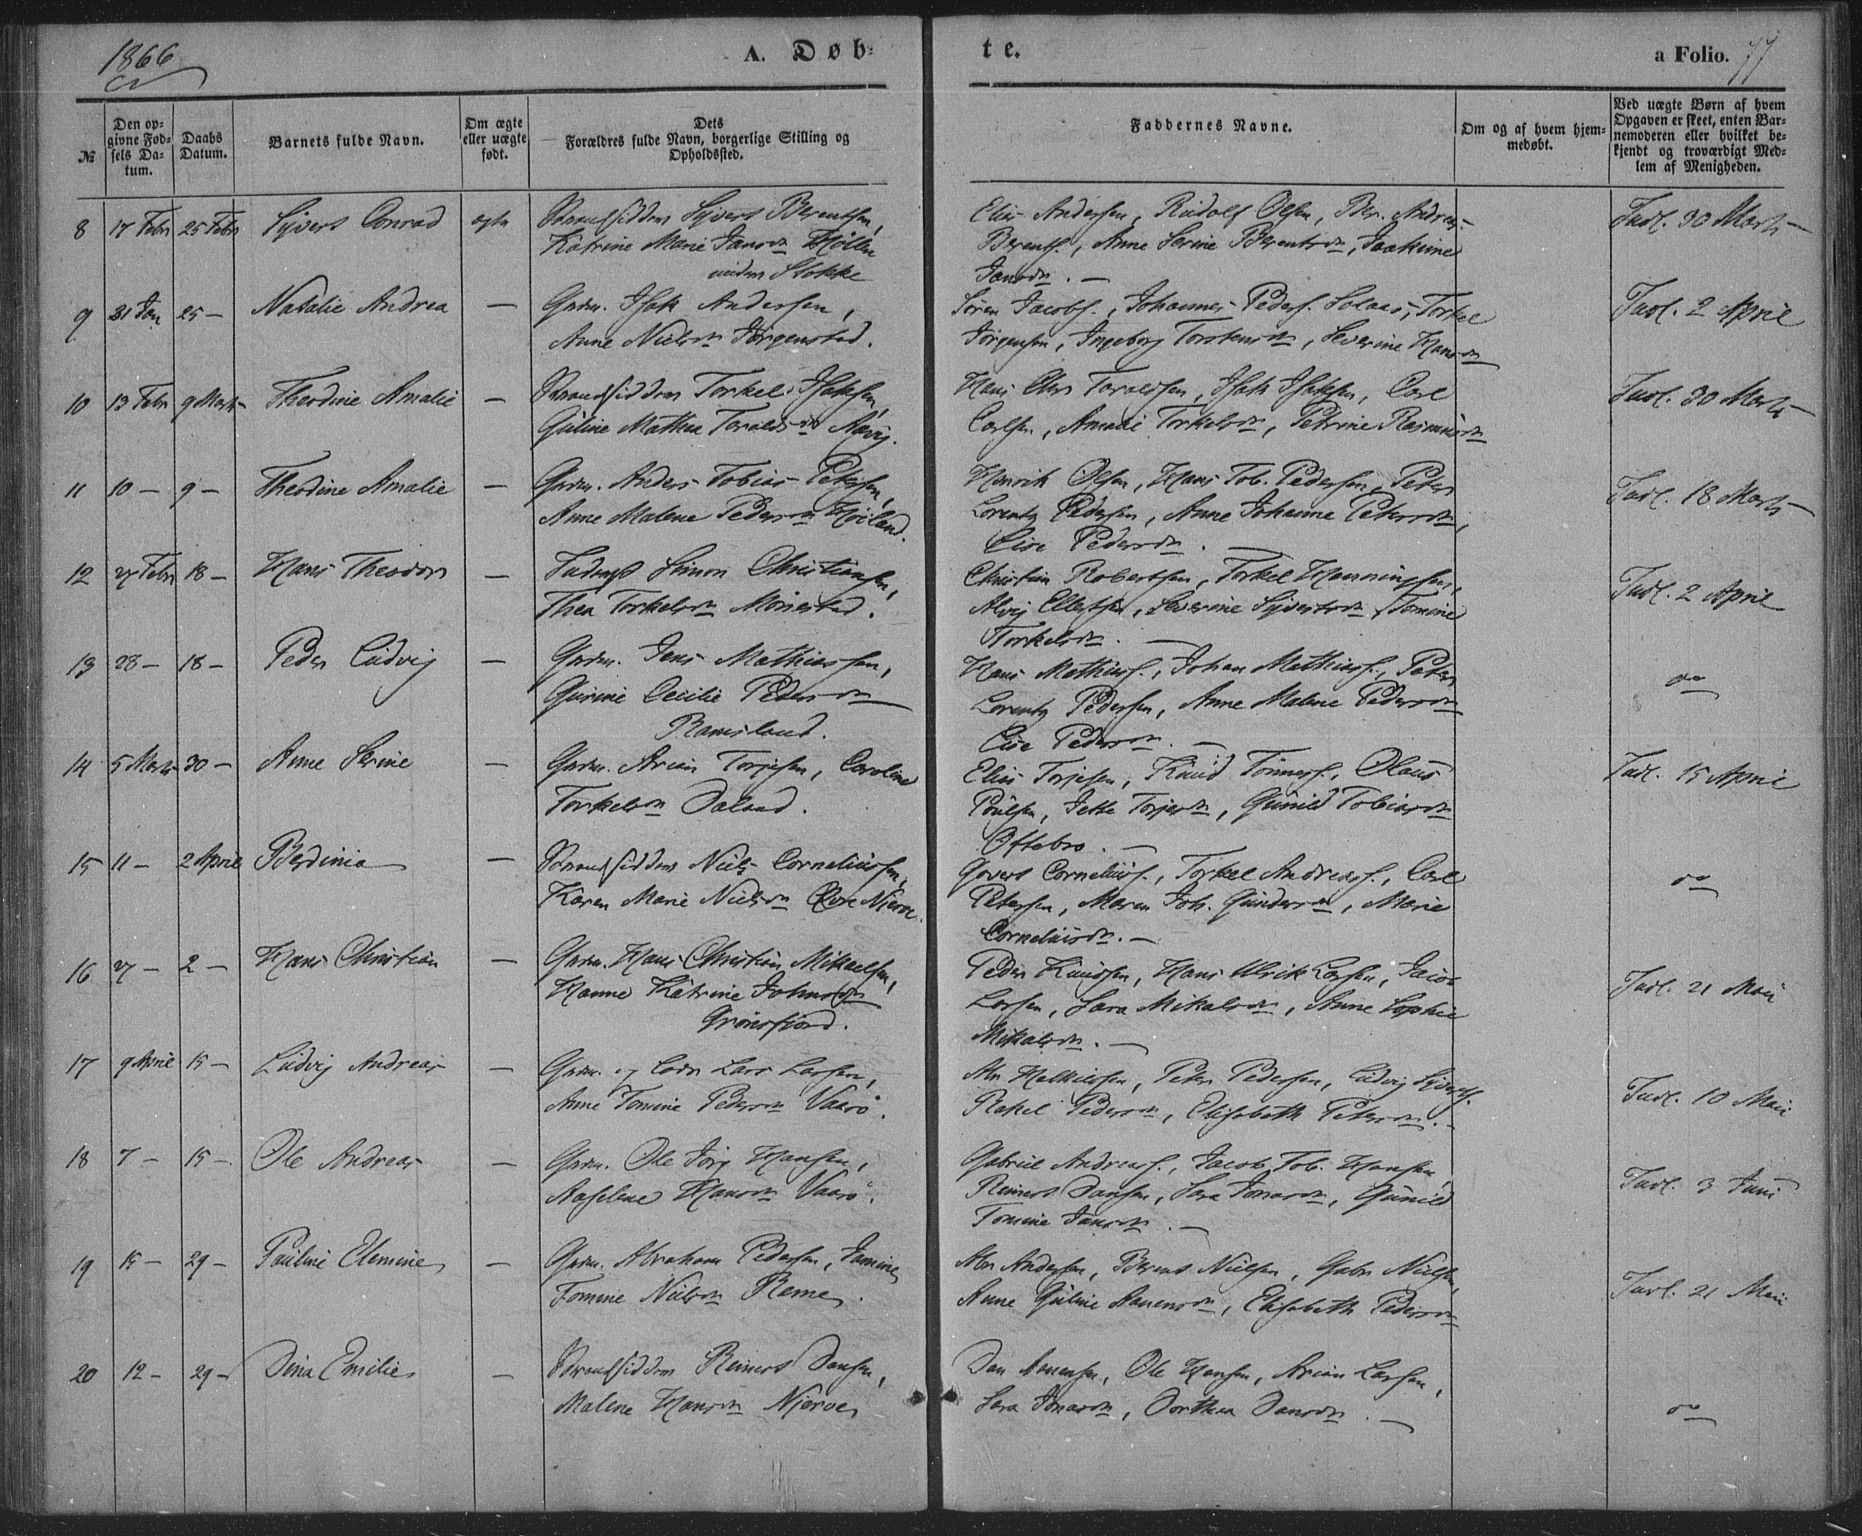 1866
A. Døb-
te.
a Folio. 77
№
Den op-
givne Fød-
sels Da-
tum.
Daabs
Datum.
Barnets fulde Navn.
Om ægte
eller uægte
født.
Dets
Forældres fulde Navn, borgerlige Stilling og
Opholdssted.
Faddernes Navne.
Om og af hvem hjem-
medøbt.
Ved uægte Børn af hvem
Opgaven er skeet, enten Bar-
nemoderen eller hvilket be-
kjendt og troværdigt Med-
lem af Menigheden.
8 17 Febr 25 Febr Syvert Conrad ægte Strandsidder Syvert Berentsen,
Katrine Marie Jansdr
Stokke
Elias Andersen, Rudolf Olsen, Ber. Andreas
Berents., Anne Serine Berentsdr, Joakime
Jansdr. —
Indl. 30 Marts
9 31 Jan 25 — Natalie Andrea — Grdm. Isak Andersen,
Anne Nielsdr Jørgenstad.
Søren Jacobs., Johannes Peders. Solaas, Torkel
Jørgensen, Ingeborg Torstensdr, Severine Hansdr
Indl. 2 April
10 13 Febr 9 Marts Theodine Amalie — Strandsidder Torkel Isaksen,
Guline Mathea Toraldsdr Aavig.
Hans Chr. Toraldsen, Isak Isaksen, Carl
Carlsen, Amalie Torkelsdr, Petrine Rasmusdr
Indl. 30 Marts
11 10 — 9 — Theodine Amalie — Grdm. Anders Tobias Petersen,
Anne Malene Pedersdr Høiland.
Henrik Olsen, Hans Tob. Pedersen, Peter
Lorentz Pedersen, Anne Johanne Petersdr,
Lise Pedersdr. —
Indl. 18 Marts
12 27 Febr 18 — Hans Theodor — Inderst Simon Christiansen,
Thea Torkelsdr
Christian Robertsen, Torkel Henningsen,
Alvig Ellefsen, Severine Syvertsdr, Tomine
Torkelsdr. —
Indl. 2 April
13 28 — 18 — Peder Ludvig — Grdm. Jens Mathiassen,
Gurine Cecilie Pedersdr
Ramsland.
Hans Mathias., Johan Mathias., Peter
Lorentz Pedersen, Anne Malene Pedersdr
Lise Pedersdr. —
do
14 5 Marts 30 — Anne Serine — Grdm. Arian Torjesen, Caroline
Torkelsdr Daland.
Elias Torjesen, Knud Tønnes., Olaus
Poulsen, Jette Torjesdr, Gunild Tobiasdr
Oftebro. —
Indl. 15 April
15 11 — 2 April Berdinia — Strandsidder Niels Corneliussen,
Karen Marie Nielsdr Njerve.
Govert Cornelius., Torkel Andreas., Carl
Petersen, Maren Joh. Gundersdr, Marie
Corneliusdr. —
do
16 27 — 2 — Hans Christian — Grdm. Hans Christian Mikaelsen,
Hanne Katrine Johnsdr
Grønsfjord.
Peder Knudsen, Hans Ulrik Larsen, Jacob
Larsen, Sara Mikalsdr, Anne Sophie
Mikalsdr. —
Indl. 21 Mai
17 9 April 15 — Ludvig Andreas — Grdm. og Lods Lars Larsen,
Anne Tomine Pedersdr Vaarø.
Peter Pedersen, Ludvig
Rakel Pedersdr, Elisabeth Petersdr. —
Indl. 10 Mai
18 7 — 15 — Ole Andreas — Grdm. Ole Jørg. Hansen,
Aaselene Hansdr Vaarø.
Gabriel Andreas., Jacob Tob. Hansen,
Reinert Dansen, Sara Jonasdr, Gunild
Tomine Jansdr. —
Indl. 3 Juni
19 15 — 29 — Pauline Elemine — Grdm. Abraham Pedersen, Jamine
Tomine Nielsdr Reme.
Abr. Andersen, Berent Nielsen, Gabr. Nielsen,
Anne Guline Aanensdr, Elisabeth Pedersdr
Indl. 21 Mai
20 12 — 29 — Dina Emilie — Strandsidder Reinert Dansen,
Malene Hansdr Njerve
Dan Aanensen, Ole Hansen, Arian Larsen,
Sara Jonasdr, Dorthea Dansdr. —
do